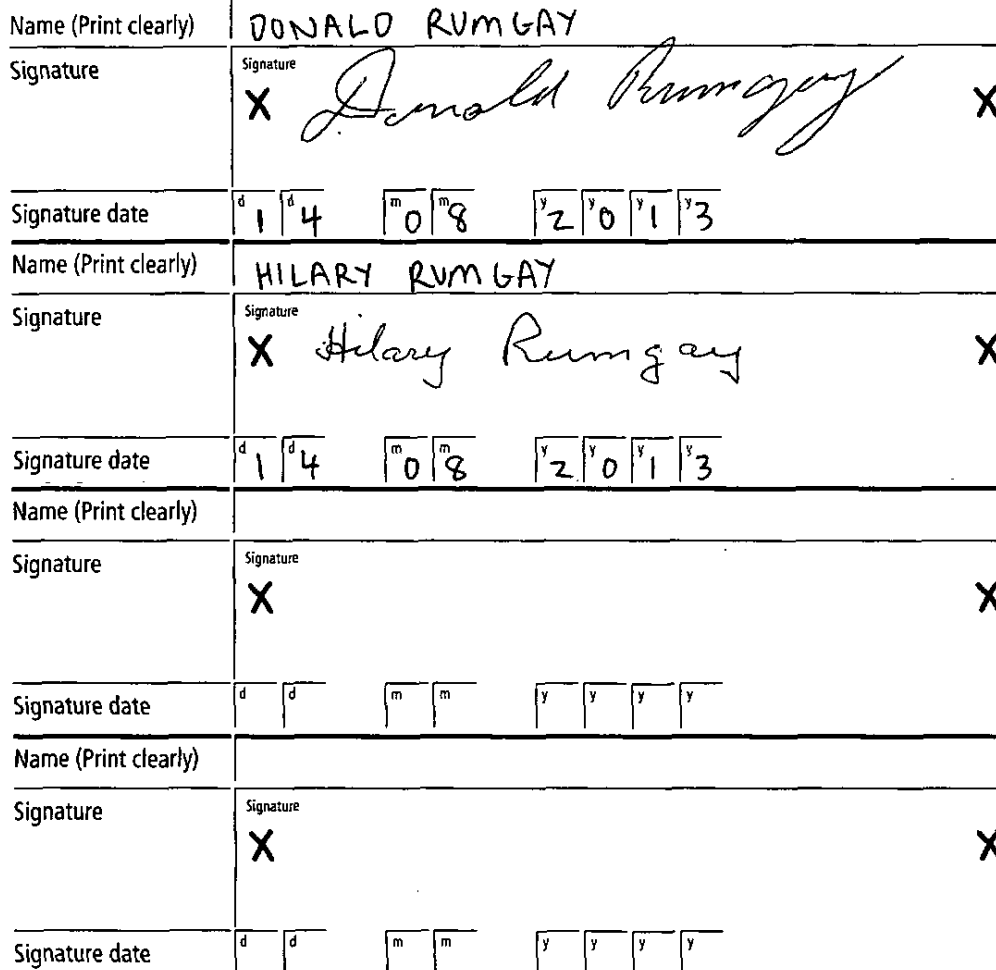 Name (Print clearly) DONALD RUMGAY
Signature Signature
X Donald Rumgay X
Signature date d 1 d 4 m 0 m 8 y 2 y 0 y 1 y 3
Name (Print clearly) HILARY RUMGAY
Signature Signature
X Hilary Rumgay X
Signature date d 1 d 4 m 0 m 8 y 2 y 0 y 1 y 3
Name (Print clearly)
Signature Signature
X X
Signature date d d m m y y y y
Name (Print clearly)
Signature Signature
X X
Signature date d d m m y y y y